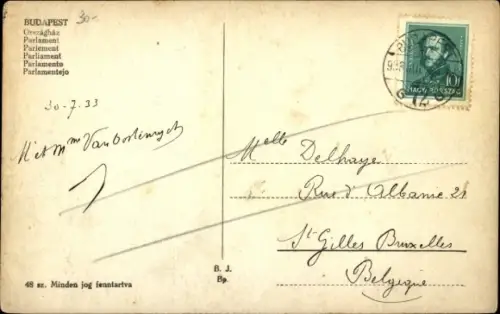 BUDAPEST
Országház
Parlament
Parlement
Parliament
Parlamento
Parlamentejo
30-
30-7.33
M et Mme Van Oostenryck
Melle Delhaye
Rue d'Albanie 21
St Gilles Bruxelles
Belgique
MAGYARORSZÁG
10
48 sz. Minden jog fenntartva
B. J.
Bp.